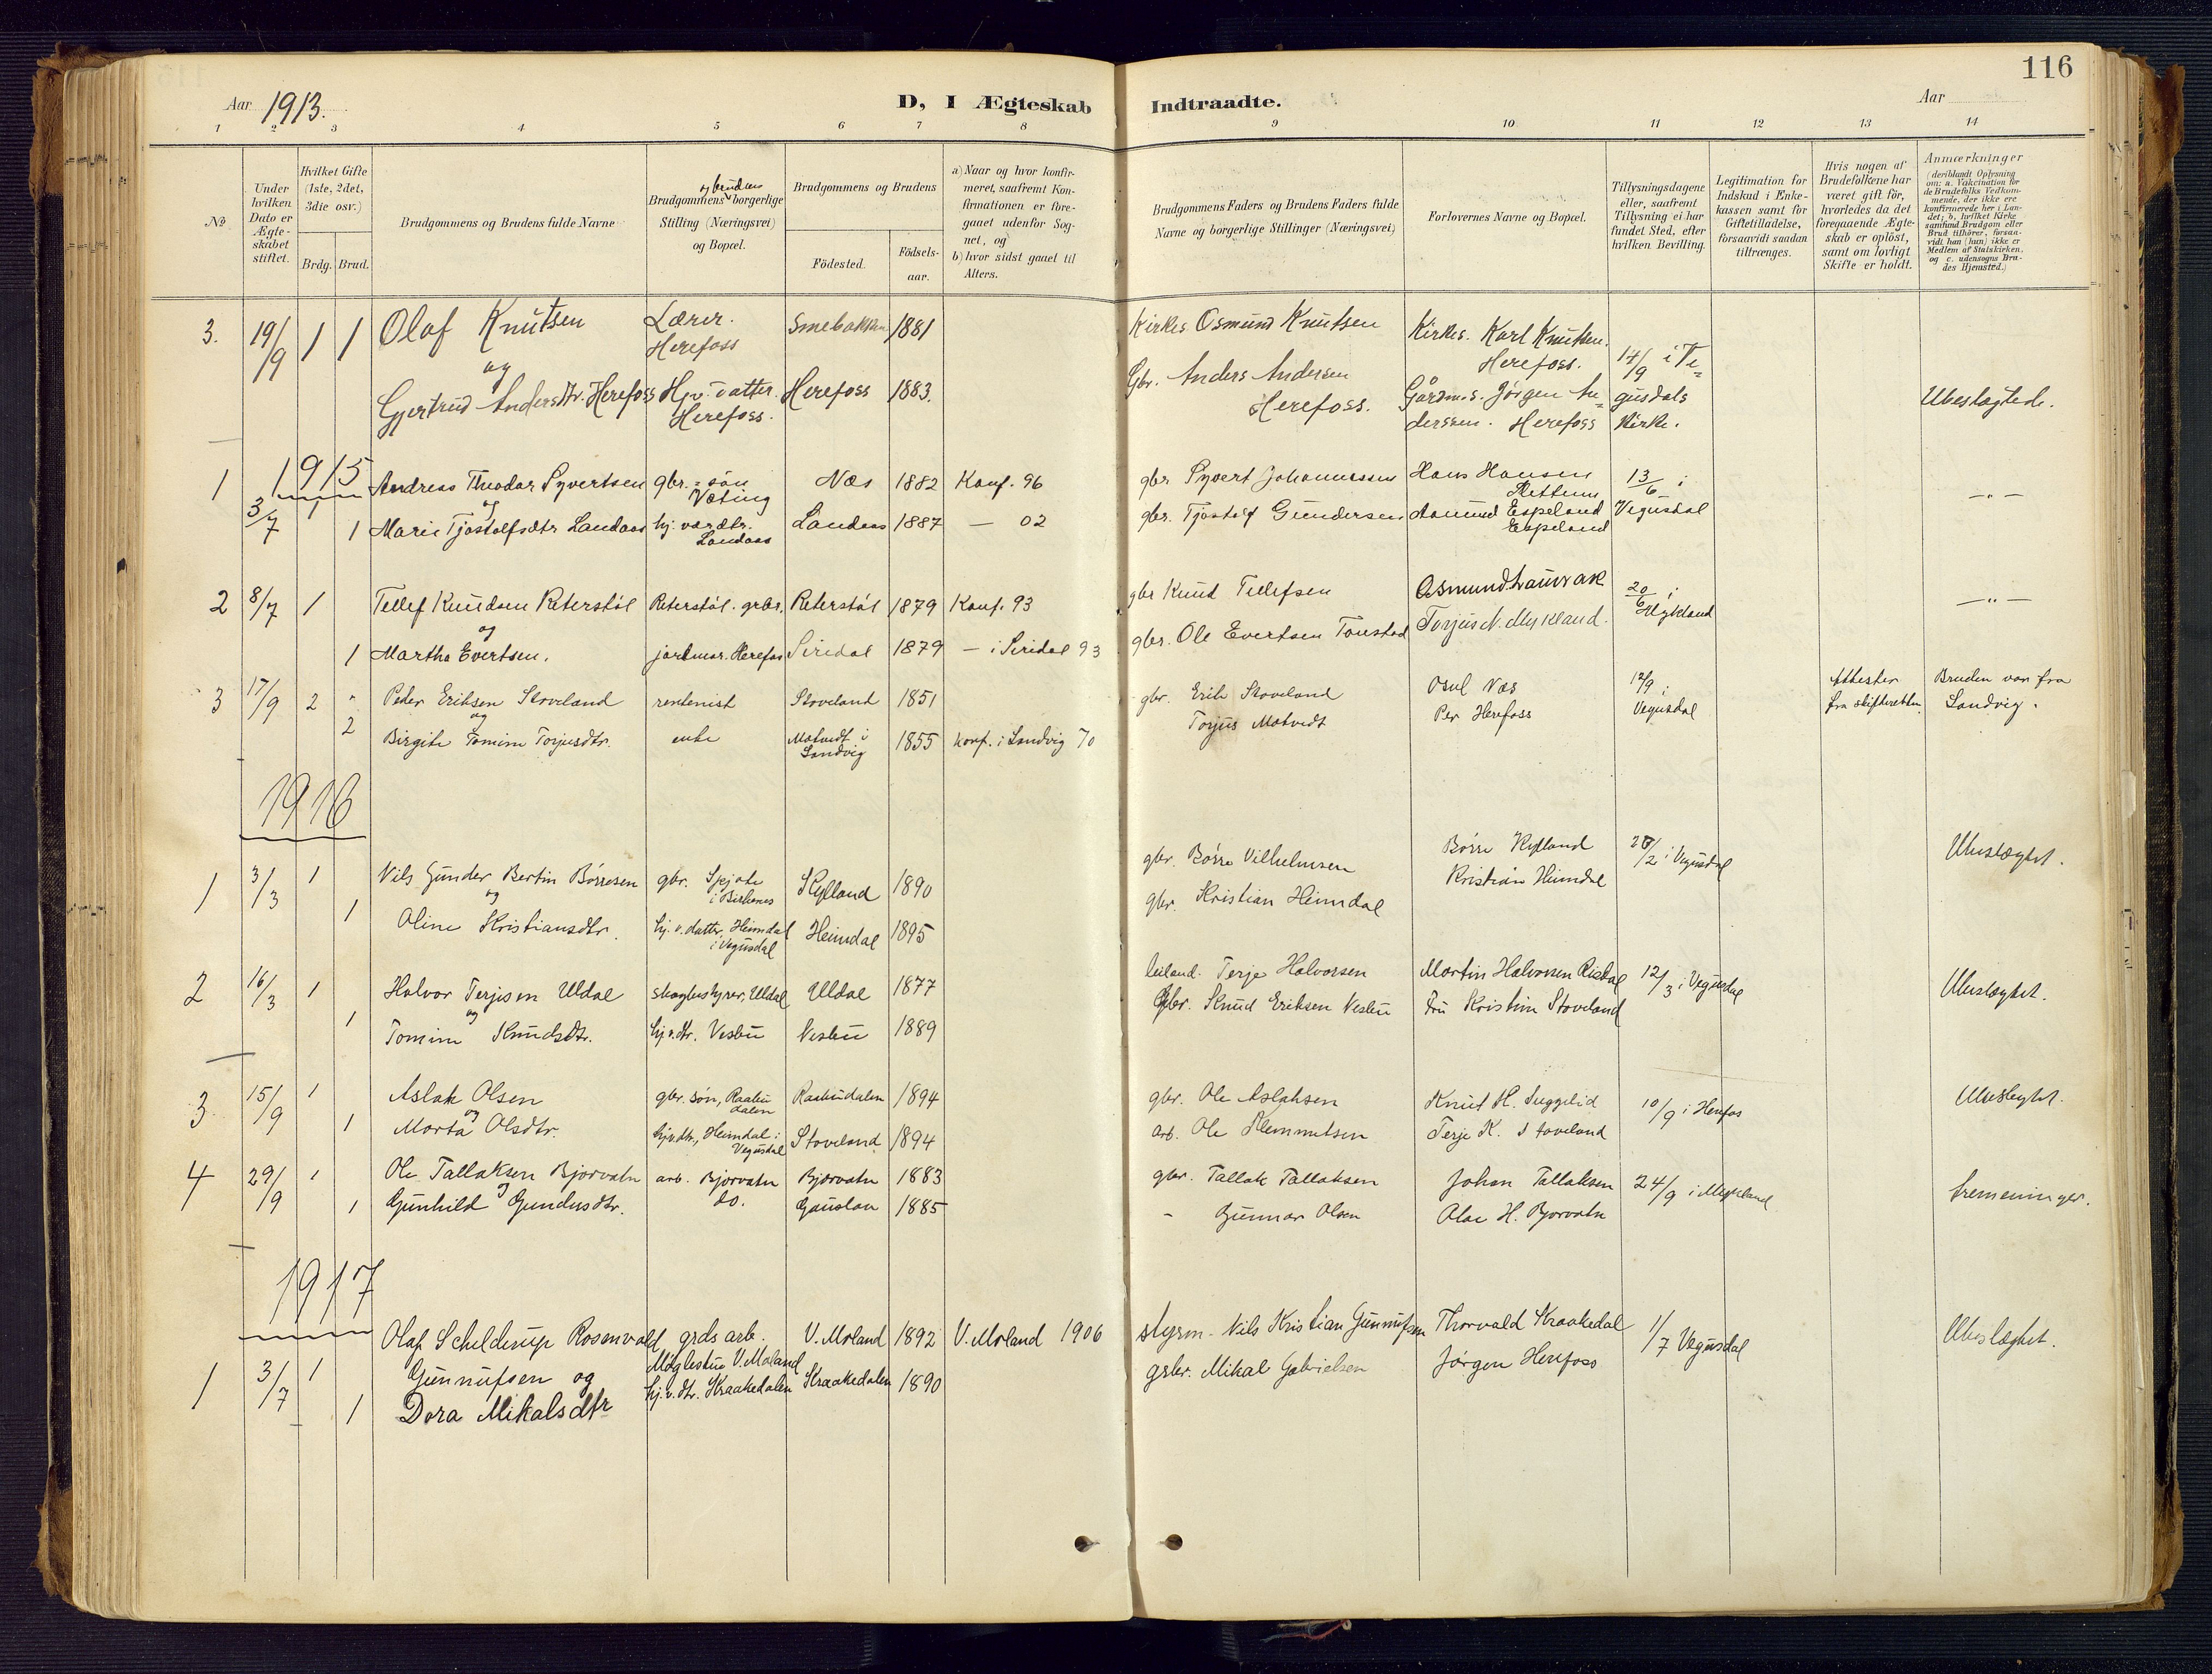 116
Aar 1913.
D, I Ægteskab Indtraadte.
Aar
1 2 3 4 5 6 7 8 9 10 11 12 13 14
No
Under hvilken Dato er Ægteskabet stiftet.
Hvilket Gifte (1ste, 2det, 3die osv.)
Brdg. Brud.
Brudgommens og Brudens fulde Navne
Brudgommens og brudens borgerlige Stilling (Næringsvei) og Bopæl.
Brudgommens og Brudens
Födested.
Födselsaar.
a) Naar og hvor konfirmeret, saafremt Konfirmationen er foregaaet udenfor Sognet, og
b) hvor sidst gaaet til Alters.
Brudgommens Faders og Brudens Faders fulde Navne og borgerlige Stillinger (Næringsvei)
Forlovernes Navne og Bopæl.
Tillysningsdagene eller, saafremt Tillysning ei har fundet Sted, efter hvilken Bevilling.
Legitimation for Indskud i Enkekassen samt for Giftetilladelse, forsaavidt saadan tiltrænges.
Hvis nogen af Brudefolkene har været gift för, hvorledes da det foregaaende Ægteskab er oplöst, samt om lovligt Skifte er holdt.
Anmærkninger
(deriblandt Oplysning om: a. Vakcination for de Brudefolks Vedkommende, der ikke ere konfirmerede her i Landet; b. hvilket Kirkesamfund Brudgom eller Brud tilhörer, forsaavidt han (hun) ikke er Medlem af Statskirken, og c. udensogns Brudes Hjemsted.)
3. 19/9 1 1 Olaf Knutsen Lærer. Herefoss Smebakken 1881 Kirkes. Osmund Knutsen Kirkes. Karl Knutsen. Herefoss. 14/9 i Ve=
og
Gjertrud Andersdtr. Herefoss Hjv. datter. Herefoss. Herefoss 1883. Gbr. Anders Andersen Herefoss. Gårdm.s. Jørgen An=derssen. Herefoss gusdals Kirke. Ubeslægtede.
1915
1 3/7 1 Andreas Theodor Syvertsen gbr.=søn Væting Næs 1882 Konf. 96 gbr Syvert Johannessen Hans Hansen Rettum 13/6 i
og
1 Marie Tjøstolfsdtr Landaas hj. værdtr. Landaas Landaas 1887 — 02 gbr. Tjøstolf Gundersen Aanund Espeland Espeland Vegusdal — " —
2 8/7 1 Tellef Knudsen Reterstøl Reterstøl. grbr. Reterstøl 1879 Konf. 93 gbr Knud Tellefsen Osmund Lauvrak 20/6 i Mykland — " —
og
1 Martha Evertsen. jordmor. Herefos Siridal 1879 — i Siridal 93 gbr. Ole Evertsen Tonstad Torjus N. Mykland.
3 17/9 2 " Peder Eriksen Stoveland rentenist Stoveland 1851 gbr. Erik Stoveland Osul Næs 12/9 i Vegusdal Attester fra skifteretten Bruden var fra Landvig.
og
2 Birgite Tomine Torjusdtr. enke Molvedt i Landvig 1855 konf. i Landvig 70 Torjus Molvedt Per Herefoss
1916
1 3/3 1 Nils Gunder Bertin Børresen gbr. i Birkenes Kylland 1890 gbr. Børre Vilhelmsen Børre Kylland 28/2 i Vegusdal Ubeslægtet.
og
1 Oline Kristiansdtr. hj. v. datter, Heimdal i Vegusdal Heimdal 1895 gbr. Kristian Heimdal Kristian Heimdal
2 16/3 1 Halvor Terjesen Uldal skogbestyrer, Uldal Uldal 1877 leiland. Terje Halvorsen Martin Halvorsen Risdal 12/3 i Vegusdal Ubeslægtet.
og
1 Tomine Knudsdtr. hj.v.dtr. Vesbu Vesbu 1889 Gbr. Knud Eriksen Vesbu Fru Kristine Stoveland
3 15/9 1 Aslak Olsen gbr. søn, Raabudalen Raabudalen 1894 gbr. Ole Aslaksen Knut H. Tuggelid 10/9 i Herefos Ubeslegtet.
og
1 Marta Olsdtr. hjv.dtr., Heimdal i Vegusdal Stoveland. 1894 arb. Ole Klemmetsen Terje K. Stoveland
4 29/9 1 Ole Tallaksen Bjorvatn arb. Bjorvatn Bjorvatn 1883 gbr. Tallak Tallaksen Johan Tallaksen 24/9 i Mykland tremeninger.
og
1 Gunhild Gundersdtr. do. Gauslan 1885 - Gunnar Olsen Olav H. Bjorvatn
1917
Olaf Schelderup Rosenvald grds arb. V. Moland 1892 V. Moland 1906 styrm. Nils Kristian Gunnufsen Thorvald Kraakedal 1/7 Vegusdal Ubeslægtet.
1 3/7 1 Gunnufsen og Møglestue V. Moland
1 Dora Mikalsdtr hj. v. dtr. Kraakedalen Kraakedalen 1890 grbr. Mikal Gabrielsen Jørgen Herefoss